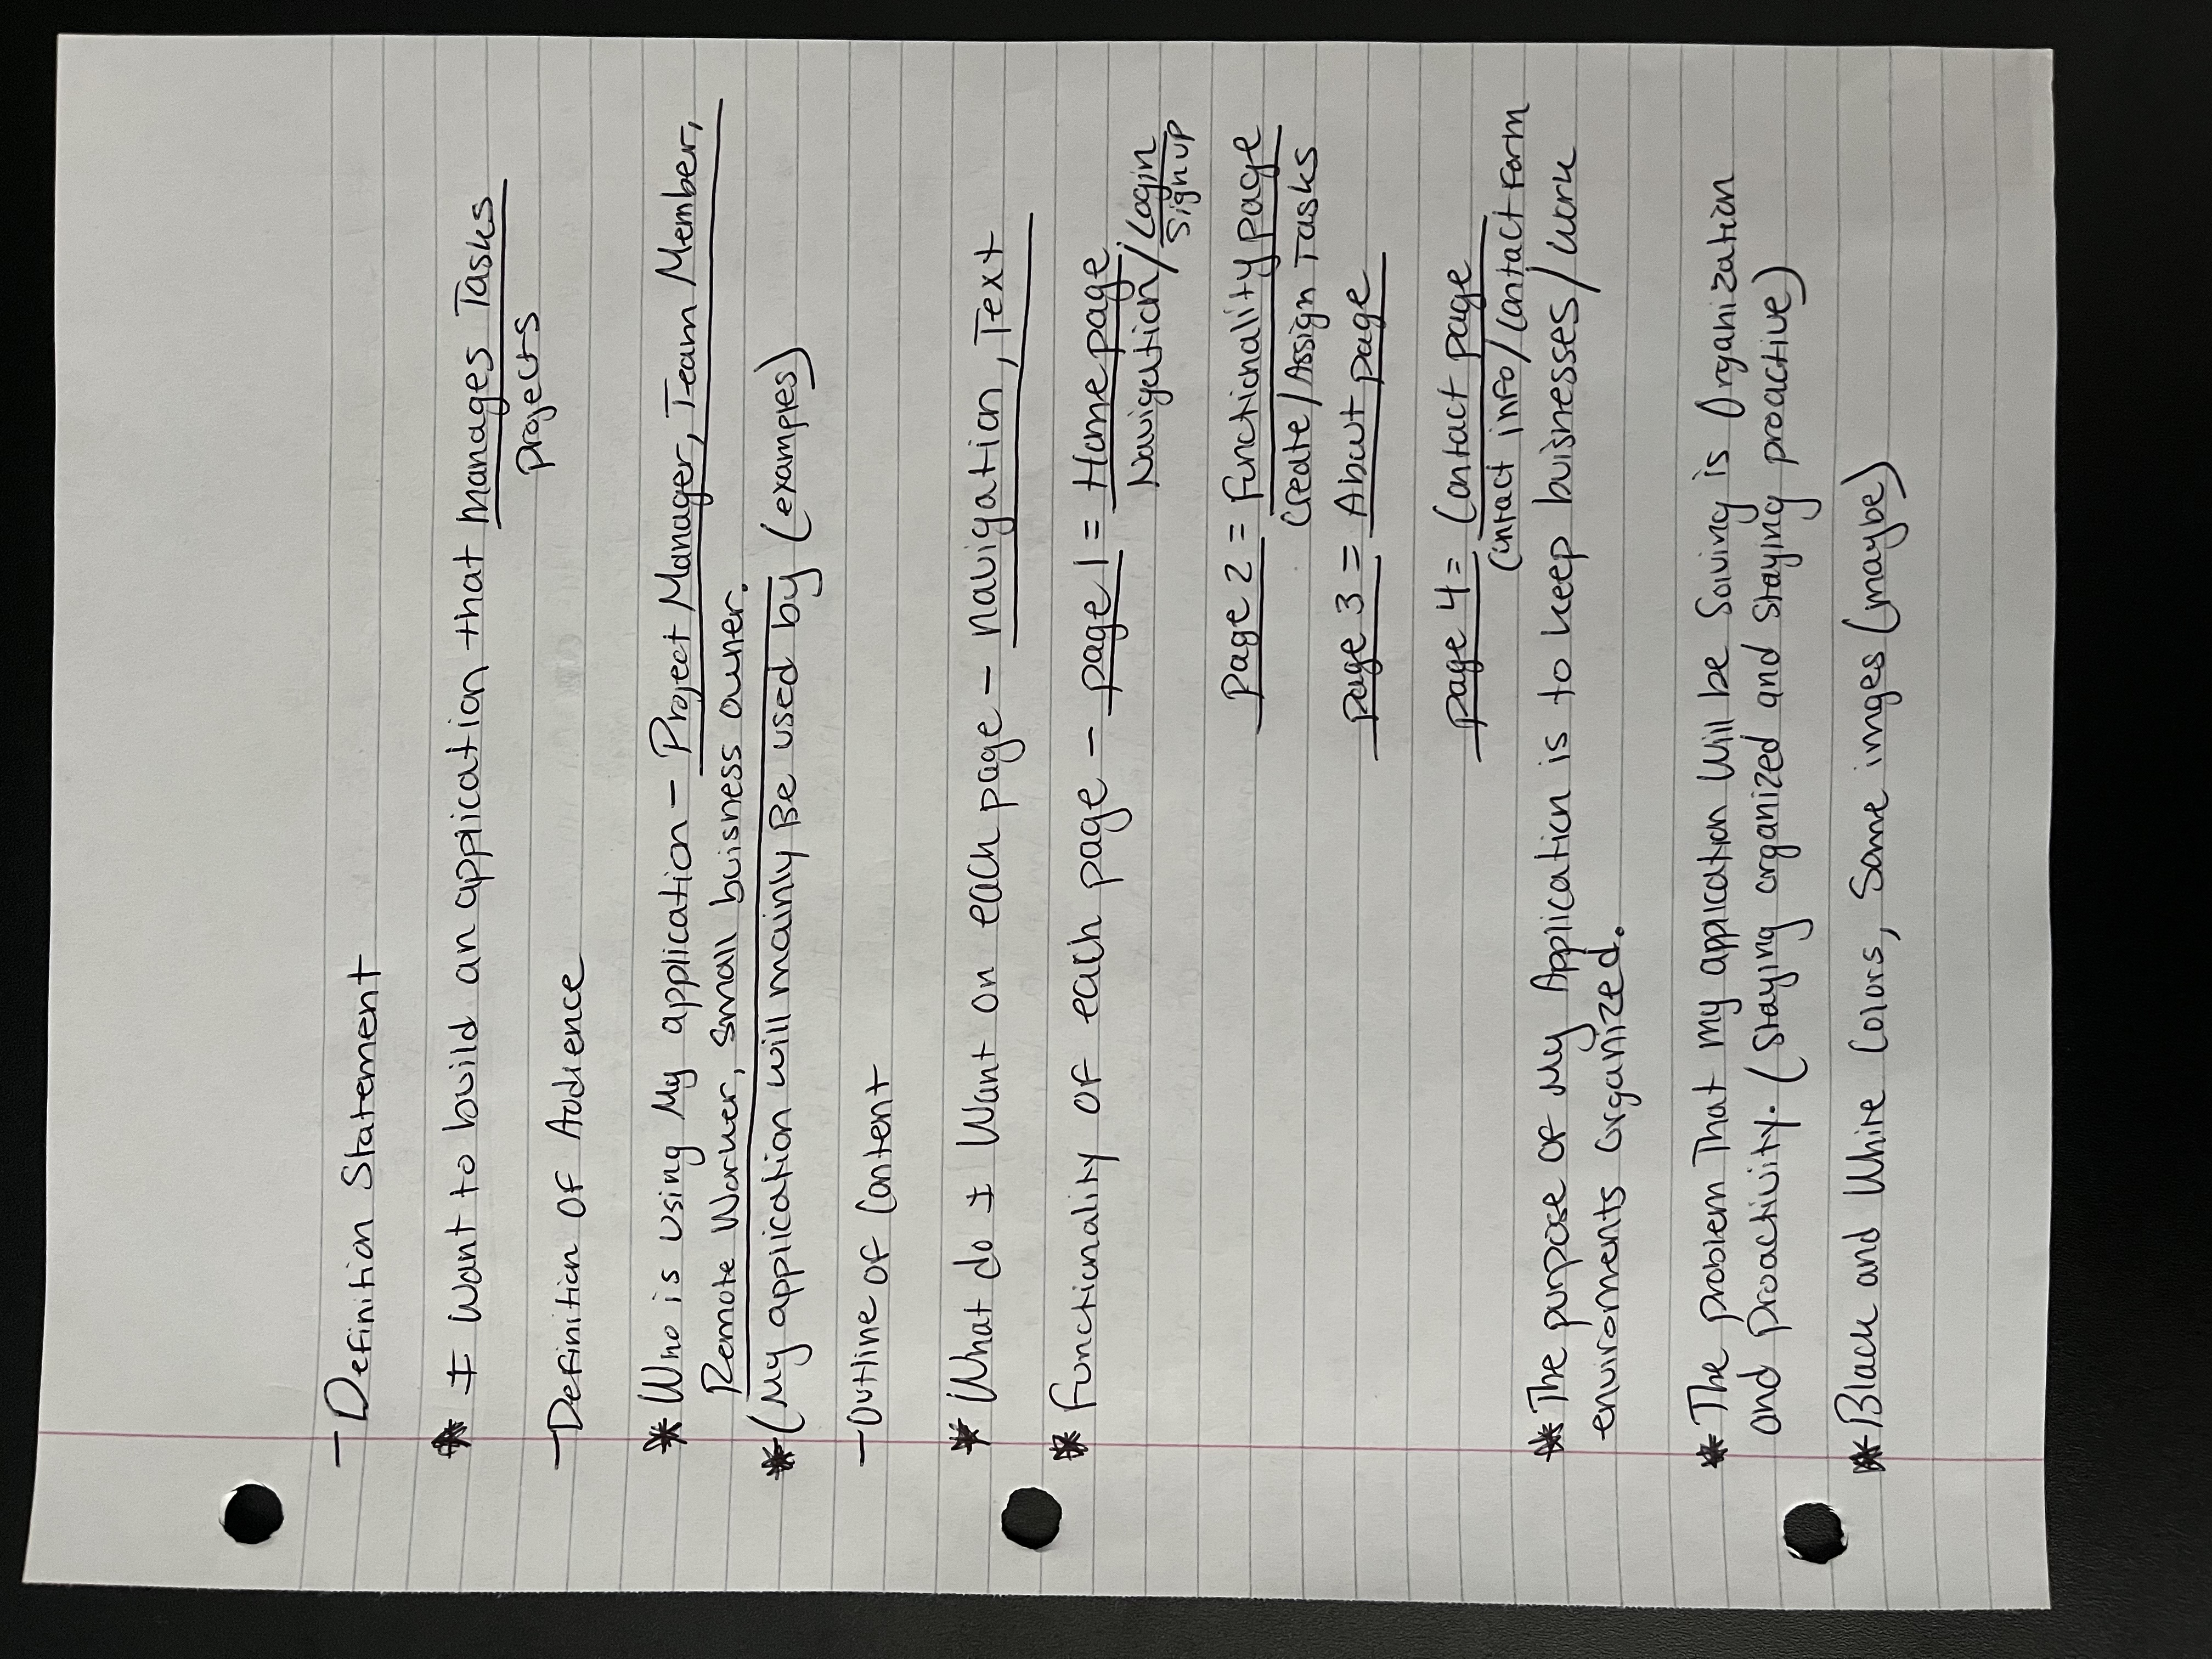 - Definition Statement
* I Want to build an application that manages Tasks
projects
- Definition OF Audience
* Who is using My application - Project Manager, Team Member,
Remote Worker, small buisness owner.
* (My application will mainly Be used by (examples)
- Outline OF Content
* What do I Want on each page - navigation, Text
* Functionality OF each page - page 1 = Home page.
Navigation/Login
Sign up
page 2 = functionality page
Create/Assign Tasks
page 3 = About page
page 4 = Contact page
Contact info/Contact Form
* The purpose OF My Application is to keep buisnesses/work
enviroments organized.
* The problem That my application Will be Solving is Organization
and Proactivity. (Staying organized and Staying proactive)
* Black and White Colors, Some imges (maybe)